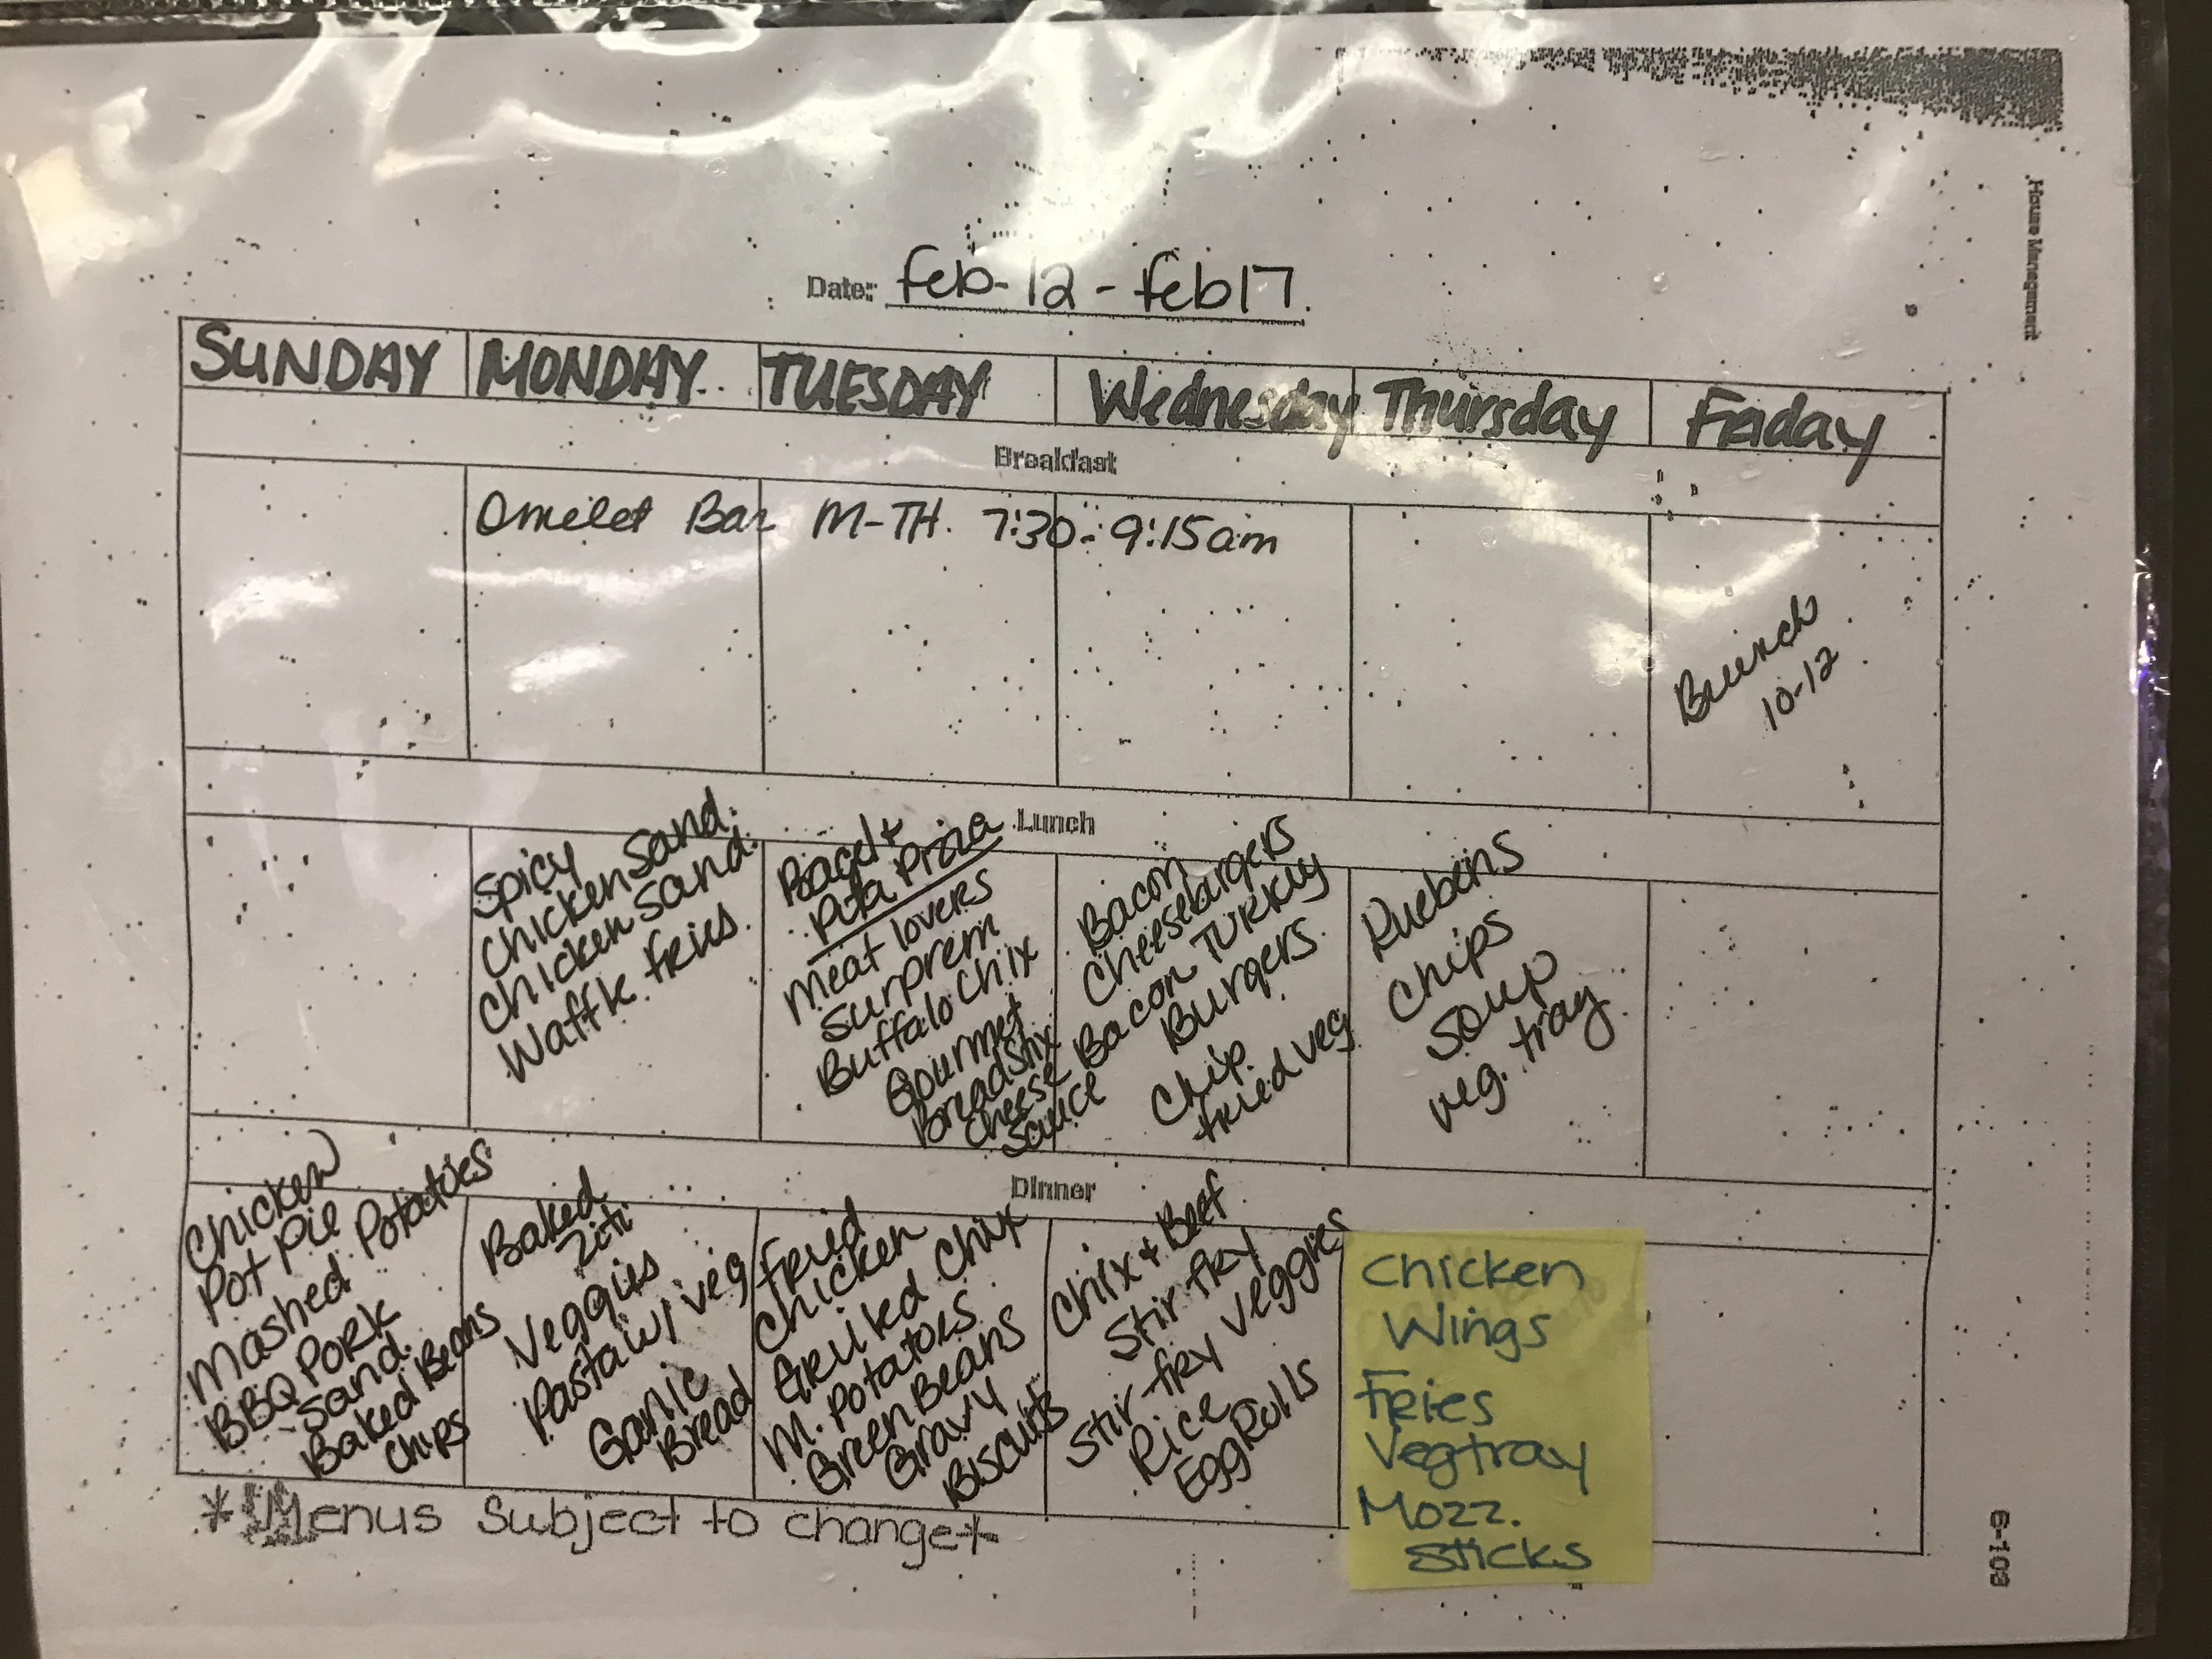 House Management
Date: feb-12 - feb 17.
SUNDAY MONDAY. TUESDAY Wednesday Thursday Friday
Breakfast
Omelet Bar M-TH. 7:30-9:15am
Brunch
10-12
Lunch
Spicy
Chicken Sand.
Chicken Sand.
Waffle fries.
Bagel +
Pita Pizza
Meat lovers
Surprem
Buffalo Chix
Gourmet
Breadstix
Cheese
Sauce
Bacon
Cheeseburgers
Bacon Turkey
Burgers.
Chip.
fried veg
Ruebens
Chips
Soup
veg. tray.
Dinner
Chicken
Pot Pie
Mashed Potatoes
BBQ Pork
Sand.
Baked Beans
Chips
Baked
Ziti
Veggies
Pasta w/ veg
Garlic
Bread
fried
Chicken
Grilled Chix
M. Potatoes.
Green Beans
Gravy
Biscuits
Chix + Beef
Stir fry
Stir-fry Veggies
Rice
Egg Rolls
Chicken
Wings
Fries
Vegtray
Mozz.
Sticks
*Menus Subject to change*
6-103